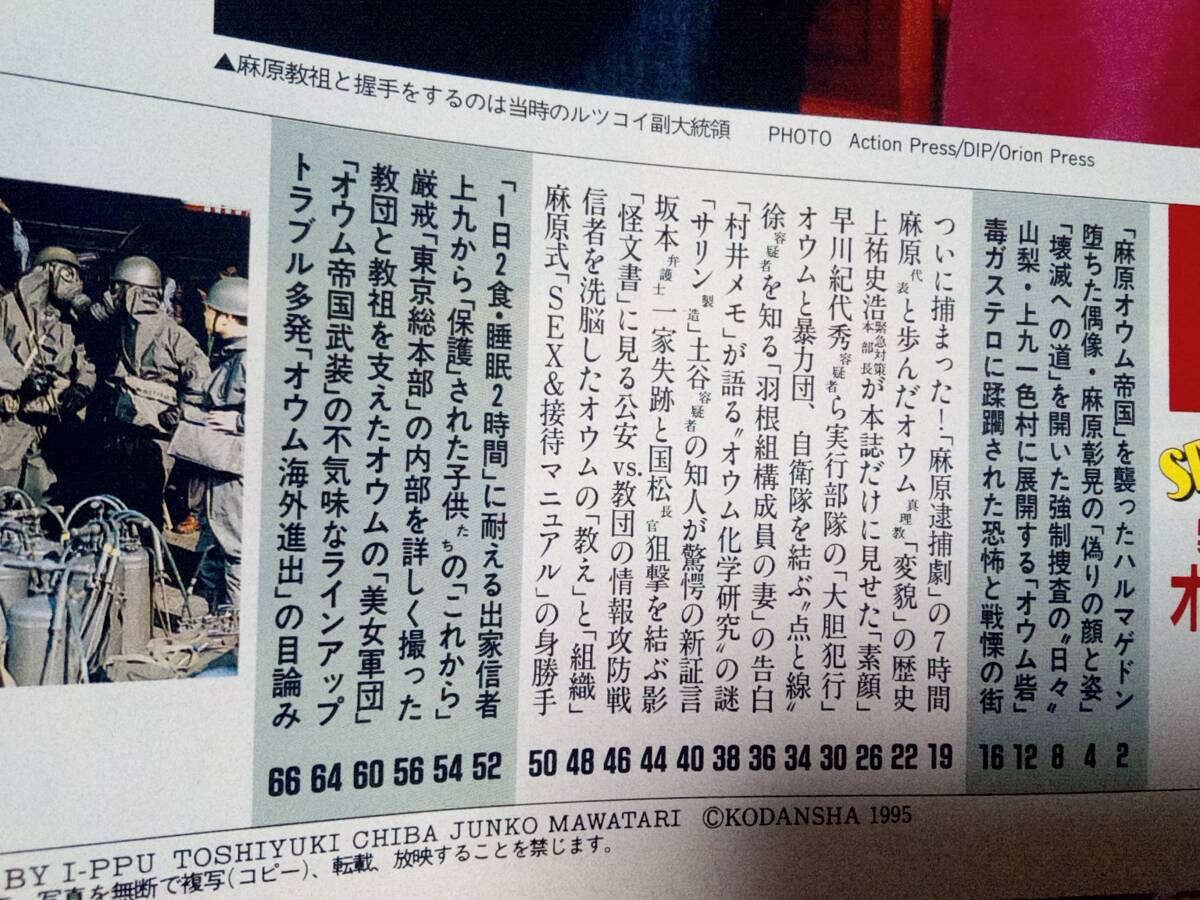 ▲麻原教祖と握手をするのは当時のルツコイ副大統領 PHOTO Action Press/DIP/Orion Press
「麻原オウム帝国」を襲ったハルマゲドン 2
堕ちた偶像・麻原彰晃の「偽りの顔と姿」 4
「壊滅への道」を開いた強制捜査の〝日々〟 8
山梨・上九一色村に展開する「オウム砦」 12
毒ガステロに蹂躙された恐怖と戦慄の街 16
ついに捕まった!「麻原逮捕劇」の7時間 19
麻原代表と歩んだオウム真理教「変貌」の歴史 22
上祐史浩緊急対策本部長が本誌だけに見せた「素顔」 26
早川紀代秀容疑者ら実行部隊の「大胆犯行」 30
オウムと暴力団、自衛隊を結ぶ〝点と線〟 34
徐容疑者を知る「羽根組構成員の妻」の告白 36
「村井メモ」が語る〝オウム化学研究〟の謎 38
「サリン製造」土谷容疑者の知人が驚愕の新証言 40
坂本弁護士一家失跡と国松長官狙撃を結ぶ影 44
「怪文書」に見る公安vs.教団の情報攻防戦 46
信者を洗脳したオウムの「教え」と「組織」 48
麻原式「SEX&接待マニュアル」の身勝手 50
「1日2食・睡眠2時間」に耐える出家信者 52
上九から「保護」された子供たちの「これから」 54
厳戒「東京総本部」の内部を詳しく撮った 56
教団と教祖を支えたオウムの「美女軍団」 60
「オウム帝国武装」の不気味なラインアップ 64
トラブル多発「オウム海外進出」の目論み 66
BY I-PPU TOSHIYUKI CHIBA JUNKO MAWATARI ©KODANSHA 1995
写真を無断で複写(コピー)、転載、放映することを禁じます。